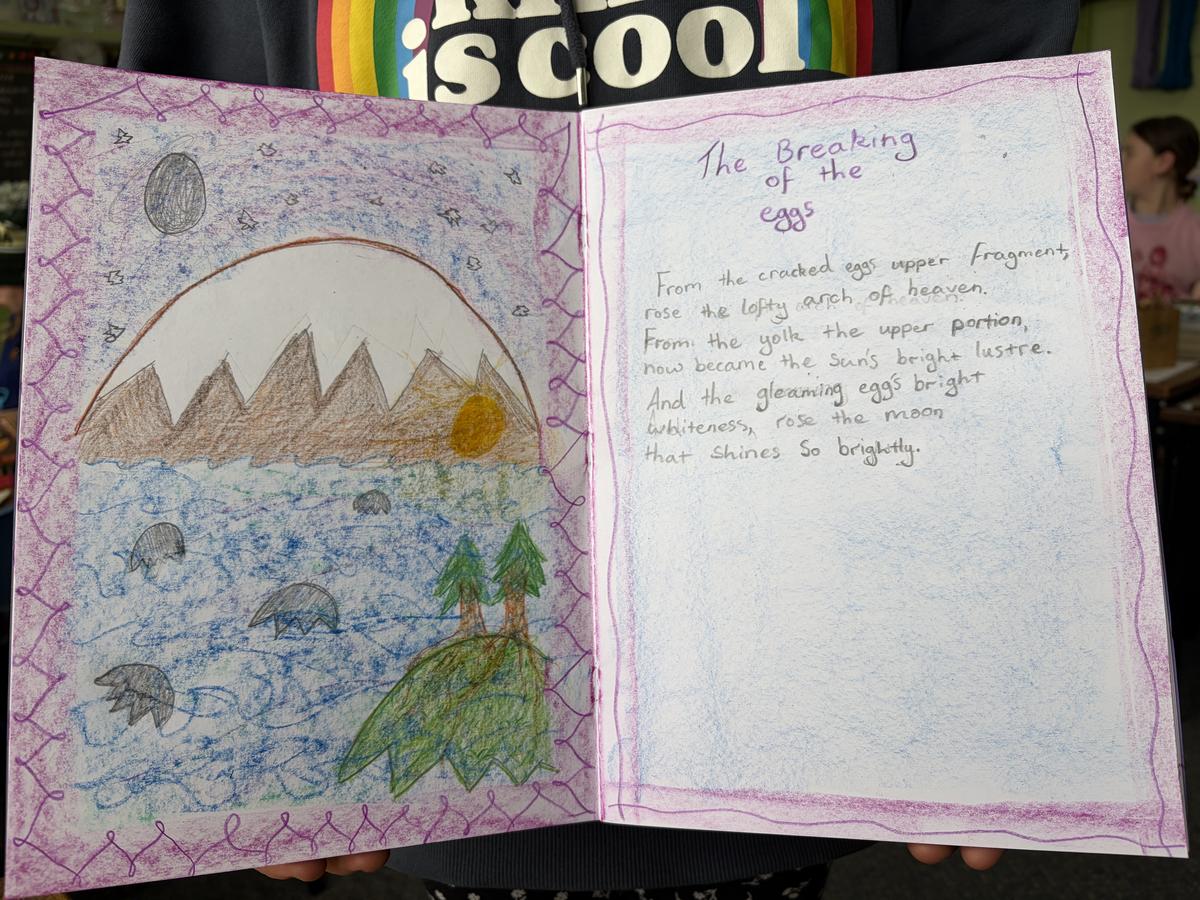 is cool
The Breaking
of the
eggs
From the cracked eggs upper fragment,
rose the lofty arch of heaven.
From the yolk the upper portion,
now became the Sun's bright lustre.
And the gleaming egg's bright
whiteness, rose the moon
that shines So brightly.